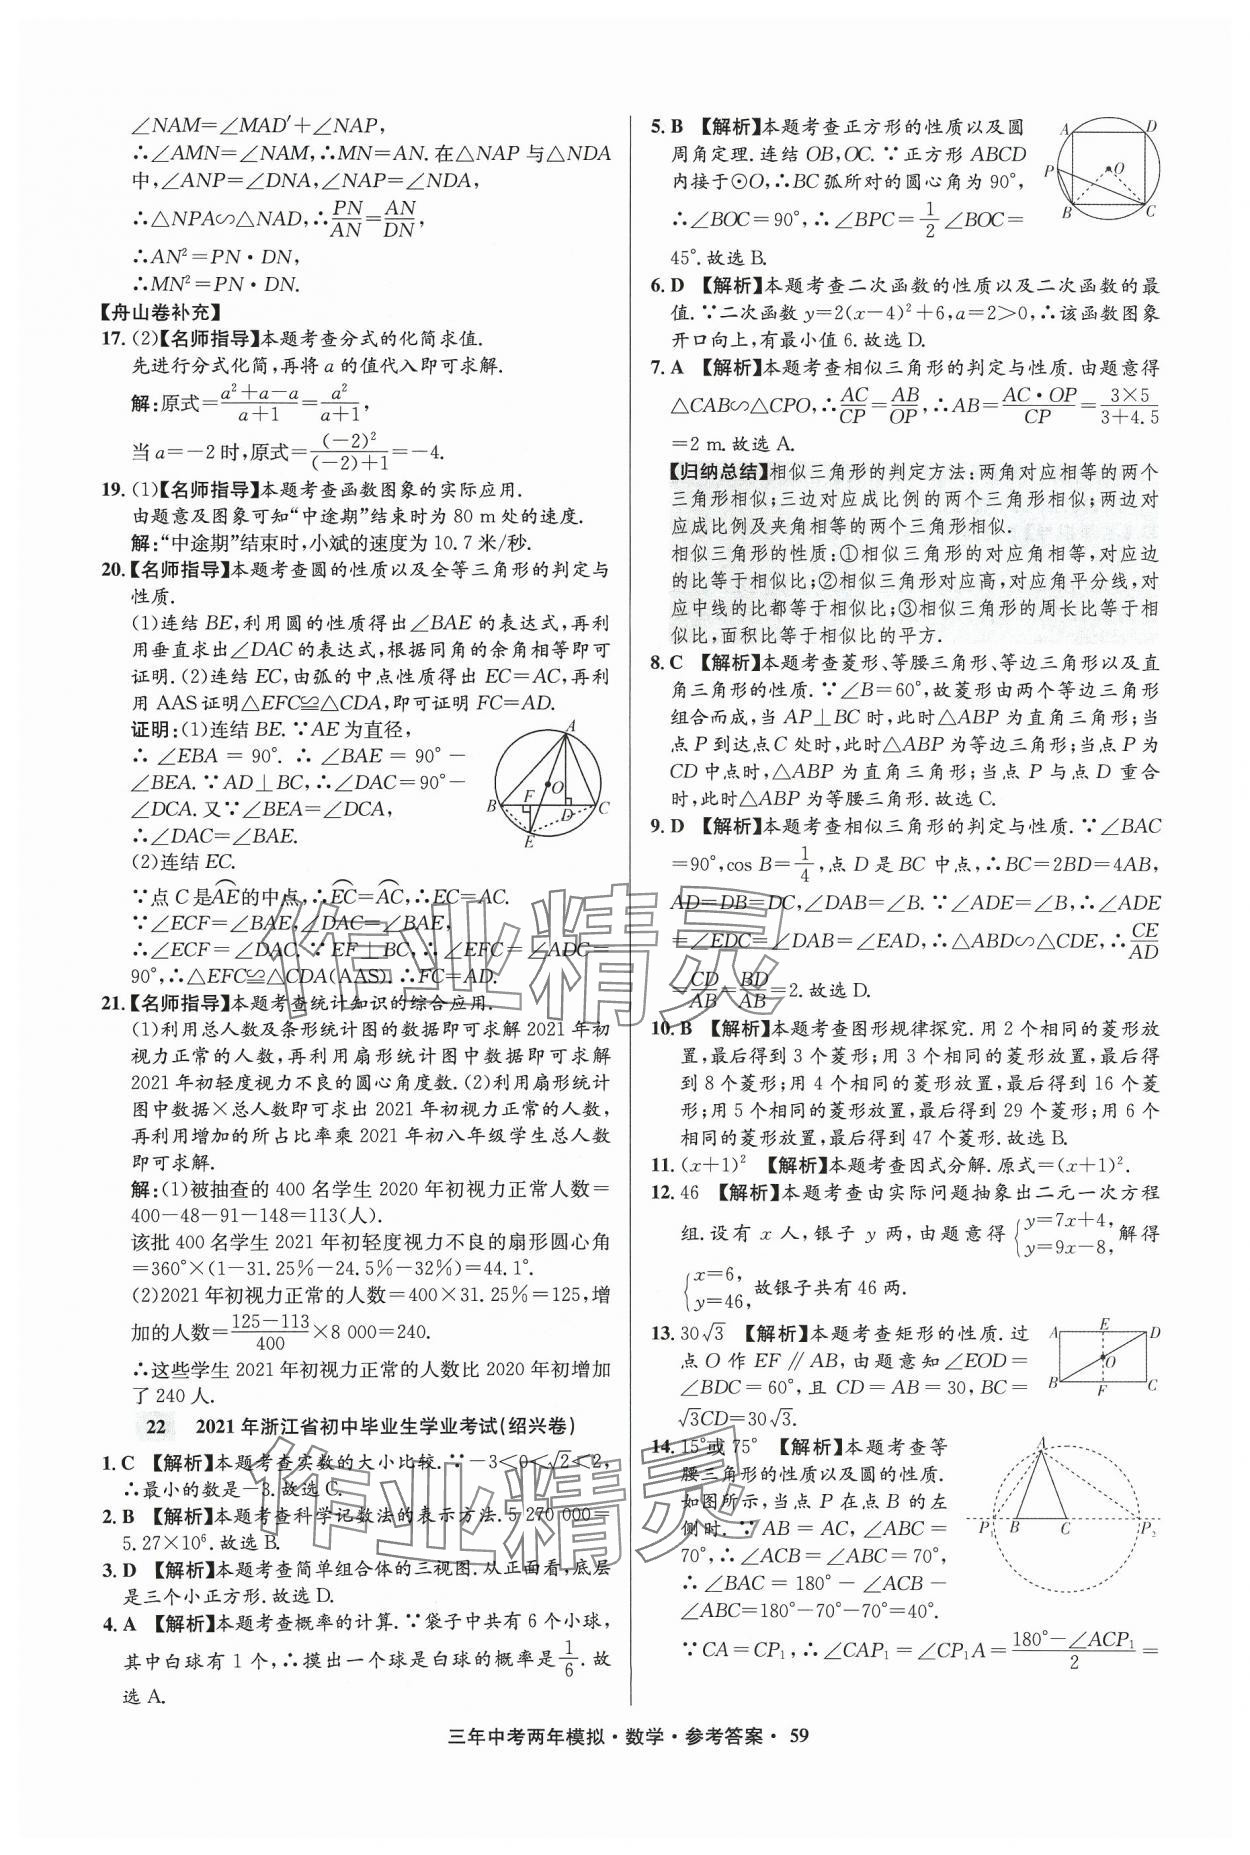 ∠NAM=∠MAD′+∠NAP,
∴∠AMN=∠NAM,∴MN=AN.在△NAP与△NDA
中,∠ANP=∠DNA,∠NAP=∠NDA,
∴△NPA∽△NAD,∴PN/AN=AN/DN,
∴AN²=PN·DN,
∴MN²=PN·DN.
【舟山卷补充】
17. (2)【名师指导】本题考查分式的化简求值.
先进行分式化简,再将a的值代入即可求解.
解:原式=(a²+a-a)/(a+1)=a²/(a+1),
当a=-2时,原式=(-2)²/((-2)+1)=-4.
19. (1)【名师指导】本题考查函数图象的实际应用.
由题意及图象可知“中途期”结束时为80 m处的速度.
解:“中途期”结束时,小斌的速度为10.7米/秒.
20.【名师指导】本题考查圆的性质以及全等三角形的判定与
性质.
(1)连结BE,利用圆的性质得出∠BAE的表达式,再利
用垂直求出∠DAC的表达式,根据同角的余角相等即可
证明.(2)连结EC,由弧的中点性质得出EC=AC,再利
用AAS证明△EFC≌△CDA,即可证明FC=AD.
证明:(1)连结BE.∵AE为直径,
∴∠EBA=90°.∴∠BAE=90°-
∠BEA.∵AD⊥BC,∴∠DAC=90°-
∠DCA.又∵∠BEA=∠DCA,
∴∠DAC=∠BAE.
(2)连结EC.
A
O
F
B
D
C
E
∵点C是AE⌒的中点,∴EC⌒=AC⌒,∴EC=AC.
∵∠ECF=∠BAE,∠DAC=∠BAE,
∴∠ECF=∠DAC.∵EF⊥BC,∴∠EFC=∠ADC=
90°,∴△EFC≌△CDA(AAS).∴FC=AD.
21.【名师指导】本题考查统计知识的综合应用.
(1)利用总人数及条形统计图的数据即可求解2021年初
视力正常的人数,再利用扇形统计图中数据即可求解
2021年初轻度视力不良的圆心角度数.(2)利用扇形统计
图中数据×总人数即可求出2021年初视力正常的人数,
再利用增加的所占比率乘2021年初八年级学生总人数
即可求解.
解:(1)被抽查的400名学生2020年初视力正常人数=
400-48-91-148=113(人).
该批400名学生2021年初轻度视力不良的扇形圆心角
=360°×(1-31.25%-24.5%-32%)=44.1°.
(2)2021年初视力正常的人数=400×31.25%=125,增
加的人数=(125-113)/400×8 000=240.
∴这些学生2021年初视力正常的人数比2020年初增加
了240人.
22 2021年浙江省初中毕业生学业考试(绍兴卷)
1. C 【解析】本题考查实数的大小比较.∵-3<0<√2<2,
∴最小的数是-3.故选C.
2. B 【解析】本题考查科学记数法的表示方法.5 270 000=
5.27×10⁶.故选B.
3. D 【解析】本题考查简单组合体的三视图.从正面看,底层
是三个小正方形.故选D.
4. A 【解析】本题考查概率的计算.∵袋子中共有6个小球,
其中白球有1个,∴摸出一个球是白球的概率是1/6.故
选A.
5. B 【解析】本题考查正方形的性质以及圆
周角定理.连结OB,OC.∵正方形ABCD
内接于⊙O,∴BC弧所对的圆心角为90°,
∴∠BOC=90°,∴∠BPC=1/2∠BOC=
45°.故选B.
A
D
P
O
B
C
6. D 【解析】本题考查二次函数的性质以及二次函数的最
值.∵二次函数y=2(x-4)²+6,a=2>0,∴该函数图象
开口向上,有最小值6.故选D.
7. A 【解析】本题考查相似三角形的判定与性质.由题意得
△CAB∽△CPO,∴AC/CP=AB/OP,∴AB=AC·OP/CP=3×5/(3+4.5)
=2 m.故选A.
【归纳总结】相似三角形的判定方法:两角对应相等的两个
三角形相似;三边对应成比例的两个三角形相似;两边对
应成比例及夹角相等的两个三角形相似.
相似三角形的性质:①相似三角形的对应角相等,对应边
的比等于相似比;②相似三角形对应高,对应角平分线,对
应中线的比都等于相似比;③相似三角形的周长比等于相
似比,面积比等于相似比的平方.
8. C 【解析】本题考查菱形、等腰三角形、等边三角形以及直
角三角形的性质.∵∠B=60°,故菱形由两个等边三角形
组合而成,当AP⊥BC时,此时△ABP为直角三角形;当
点P到达点C处时,此时△ABP为等边三角形;当点P为
CD中点时,△ABP为直角三角形;当点P与点D重合
时,此时△ABP为等腰三角形.故选C.
9. D 【解析】本题考查相似三角形的判定与性质.∵∠BAC
=90°,cos B=1/4,点D是BC中点,∴BC=2BD=4AB,
AD=DB=DC,∠DAB=∠B.∵∠ADE=∠B,∴∠ADE
=∠EDC=∠DAB=∠EAD,∴△ABD∽△CDE,∴CE/AD
=CD/AB=BD/AB=2.故选D.
10. B 【解析】本题考查图形规律探究.用2个相同的菱形放
置,最后得到3个菱形;用3个相同的菱形放置,最后得
到8个菱形;用4个相同的菱形放置,最后得到16个菱
形;用5个相同的菱形放置,最后得到29个菱形;用6个
相同的菱形放置,最后得到47个菱形.故选B.
11. (x+1)² 【解析】本题考查因式分解.原式=(x+1)².
12. 46 【解析】本题考查由实际问题抽象出二元一次方程
组.设有x人,银子y两,由题意得{y=7x+4, y=9x-8,解得
{x=6, y=46,故银子共有46两.
13. 30√3 【解析】本题考查矩形的性质.过
点O作EF∥AB,由题意知∠EOD=
∠BDC=60°,且CD=AB=30,BC=
√3CD=30√3.
A
E
D
O
B
F
C
14. 15°或75° 【解析】本题考查等
腰三角形的性质以及圆的性质.
如图所示,当点P在点B的左
侧时.∵AB=AC,∠ABC=
70°,∴∠ACB=∠ABC=70°,
∴∠BAC=180°-∠ACB-
∠ABC=180°-70°-70°=40°.
A
P₁
B
C
P₂
∵CA=CP₁,∴∠CAP₁=∠CP₁A=(180°-∠ACP₁)/2=
三年中考两年模拟·数学·参考答案· 59
作业精灵
作业精灵